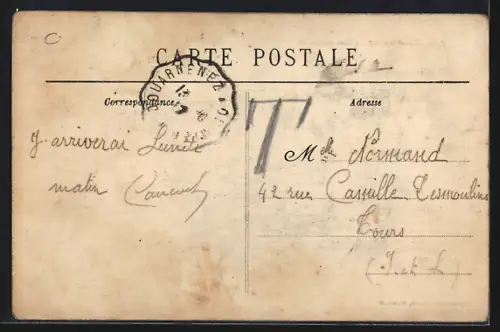 C
CARTE POSTALE
Correspondance
Adresse
DOUARNENEZ
13
T
J'arriverai Lundi
matin
Melle Normand
42 rue Camille Desmoulins
Tours
(I. et L)